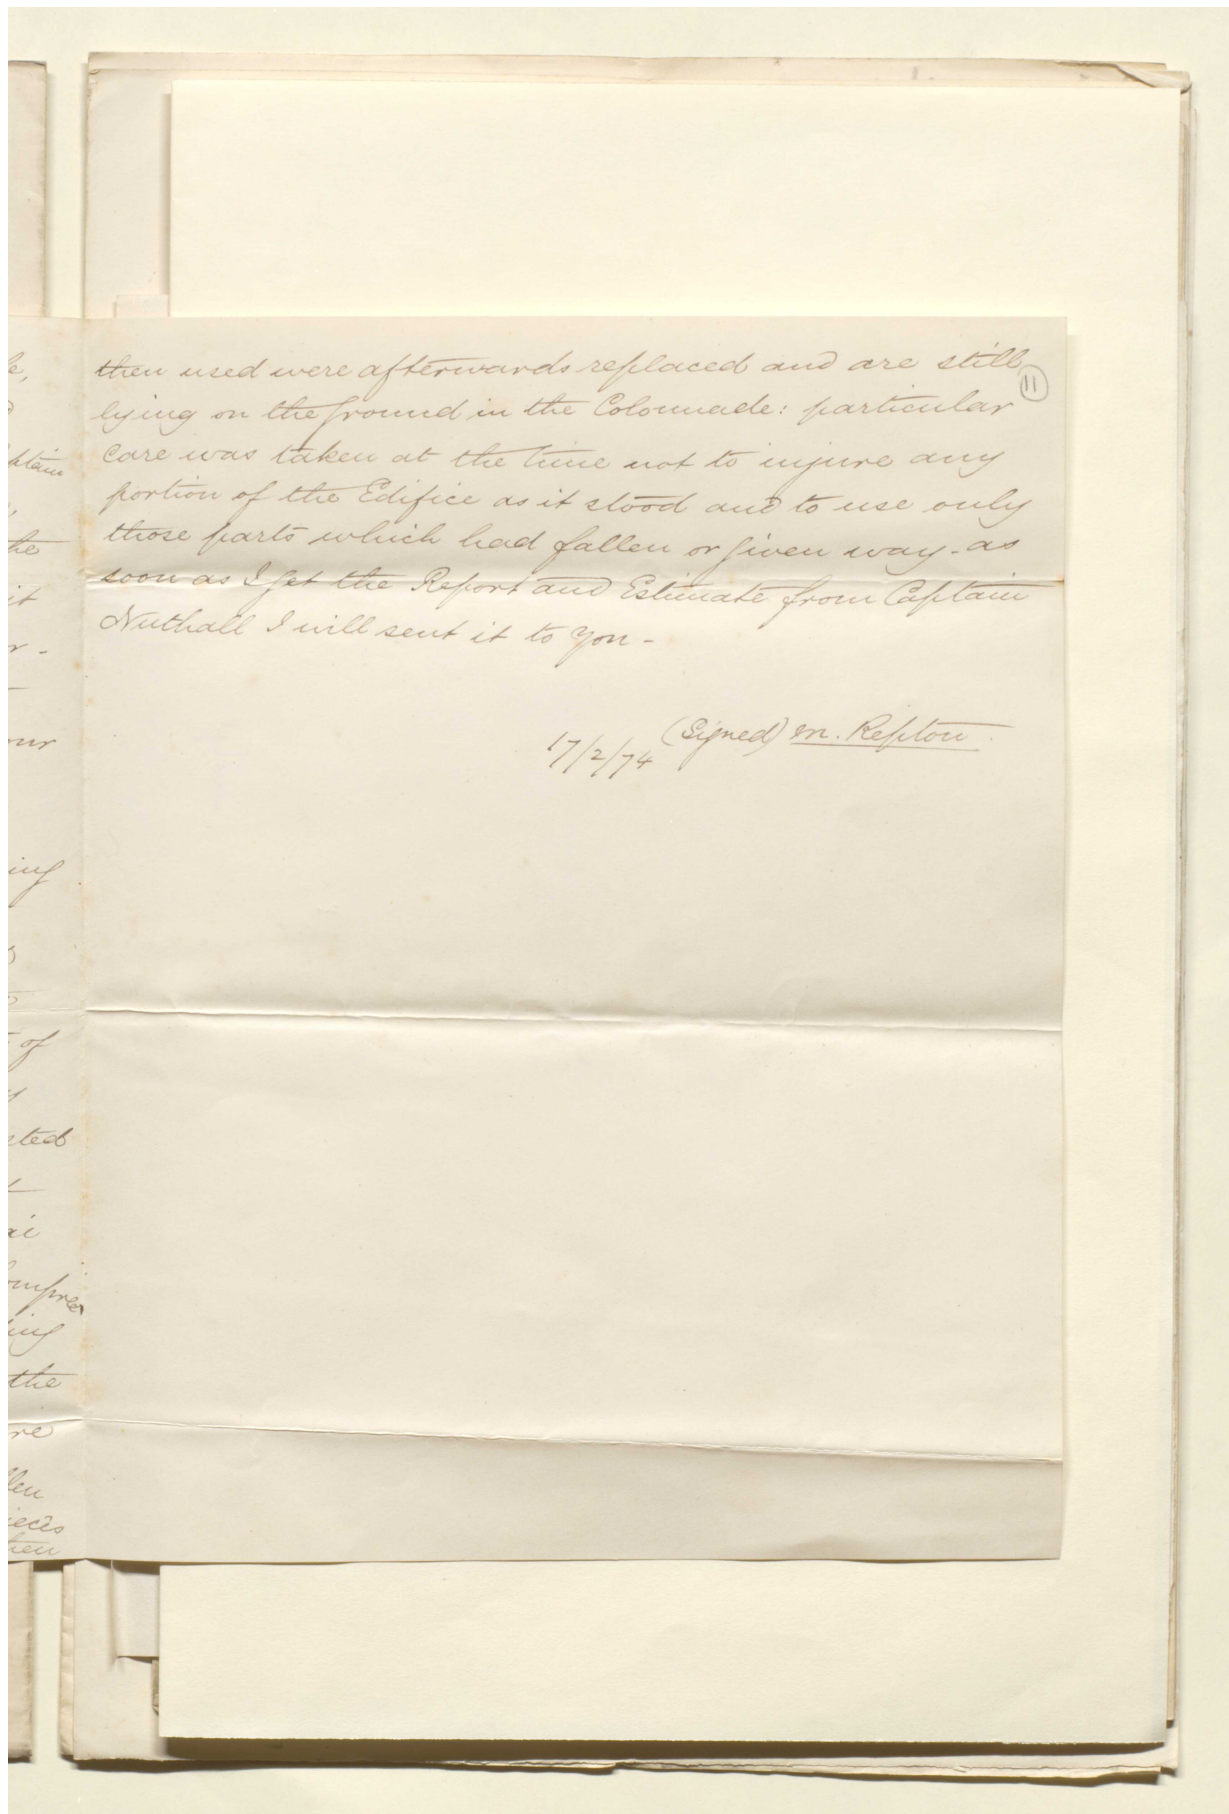 then used were afterwards replaced and are still
11
lying on the ground in the Colonnade: particular
care was taken at the time not to injure any
portion of the Edifice as it stood and to use only
those parts which had fallen or given way - as
soon as I get the Report and Estimate from Captain
Nuthall I will sent it to you -
(Signed) M. Repton.
17/2/74
he
it
our
ing
of
the